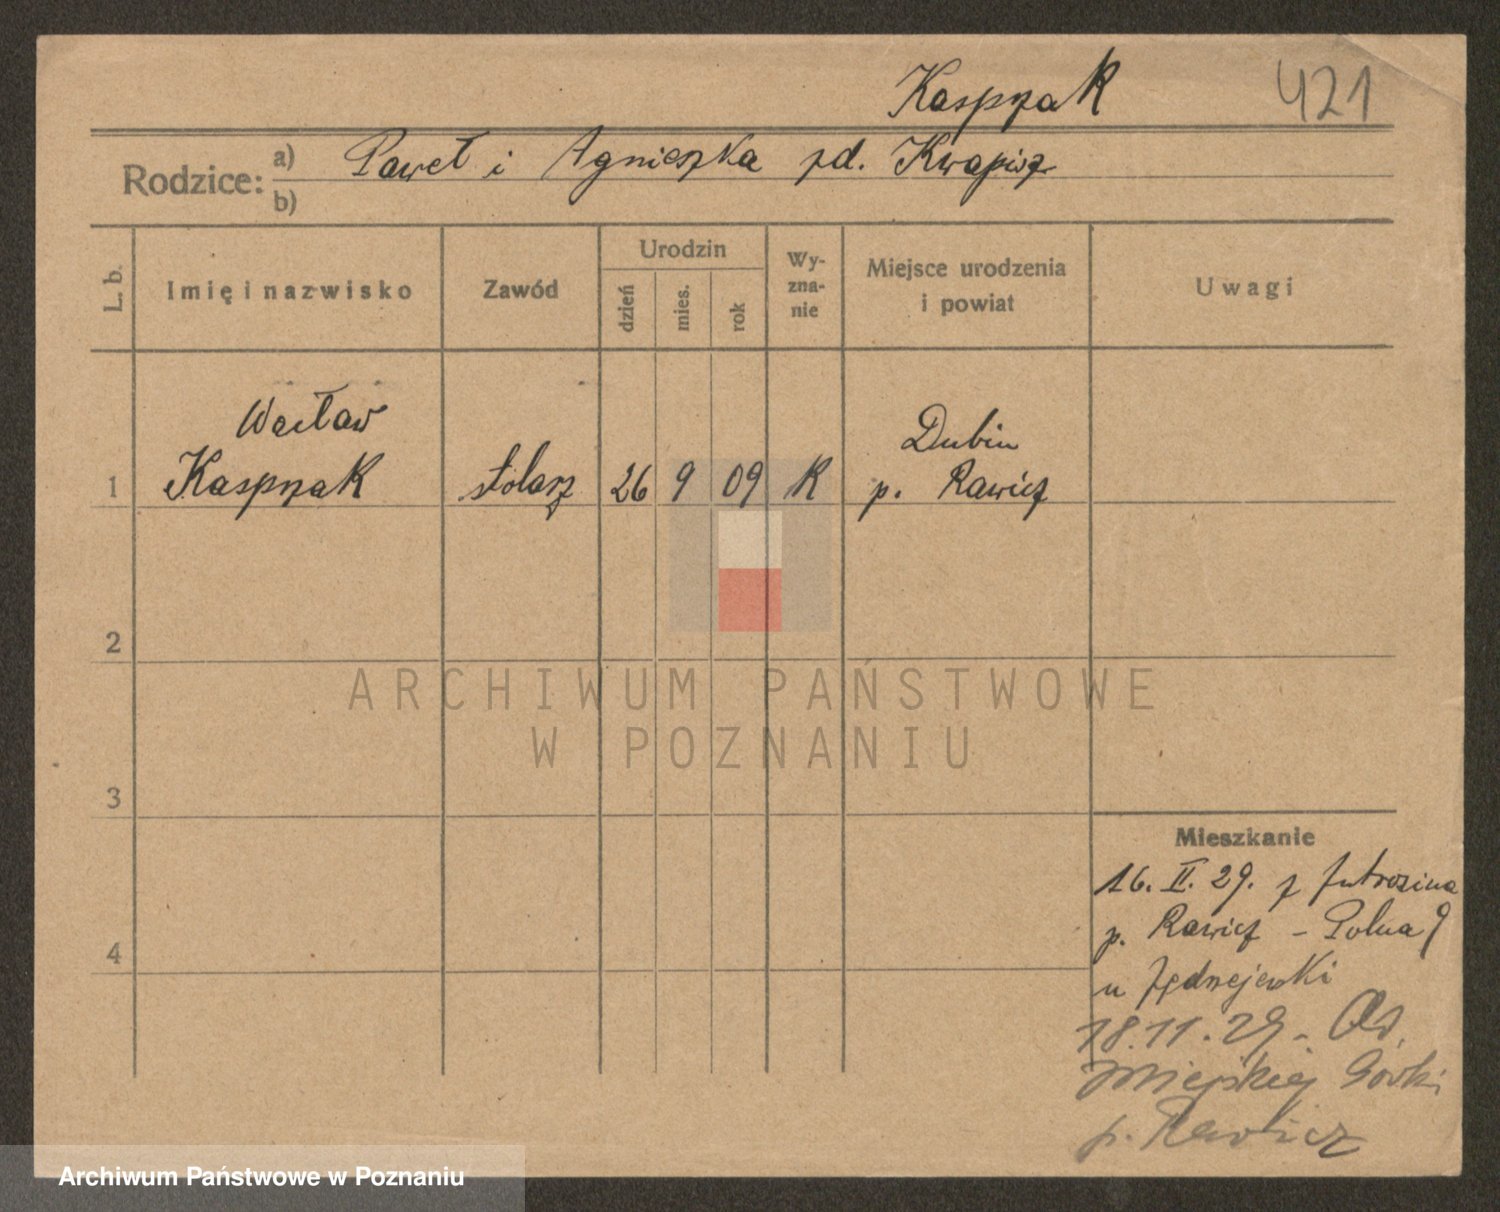 Kasprzak 421
Rodzice: a) Paweł i Agnieszka zd. Kwapisz
b)
L. b. Imię i nazwisko Zawód Urodzin dzień mies. rok Wy-zna-nie Miejsce urodzenia i powiat Uwagi
Wacław Dubin
1 Kasprzak stolarz 26 9 09 R p. Rawicz
2
ARCHIWUM PAŃSTWOWE
W POZNANIU
3
Mieszkanie
16. II. 29. z Jutrosina
p. Rawicz - Polna 9
4
u Jędrzejewski
18.11.29 -
Miejskiej Górki
p. Rawicz
Archiwum Państwowe w Poznaniu